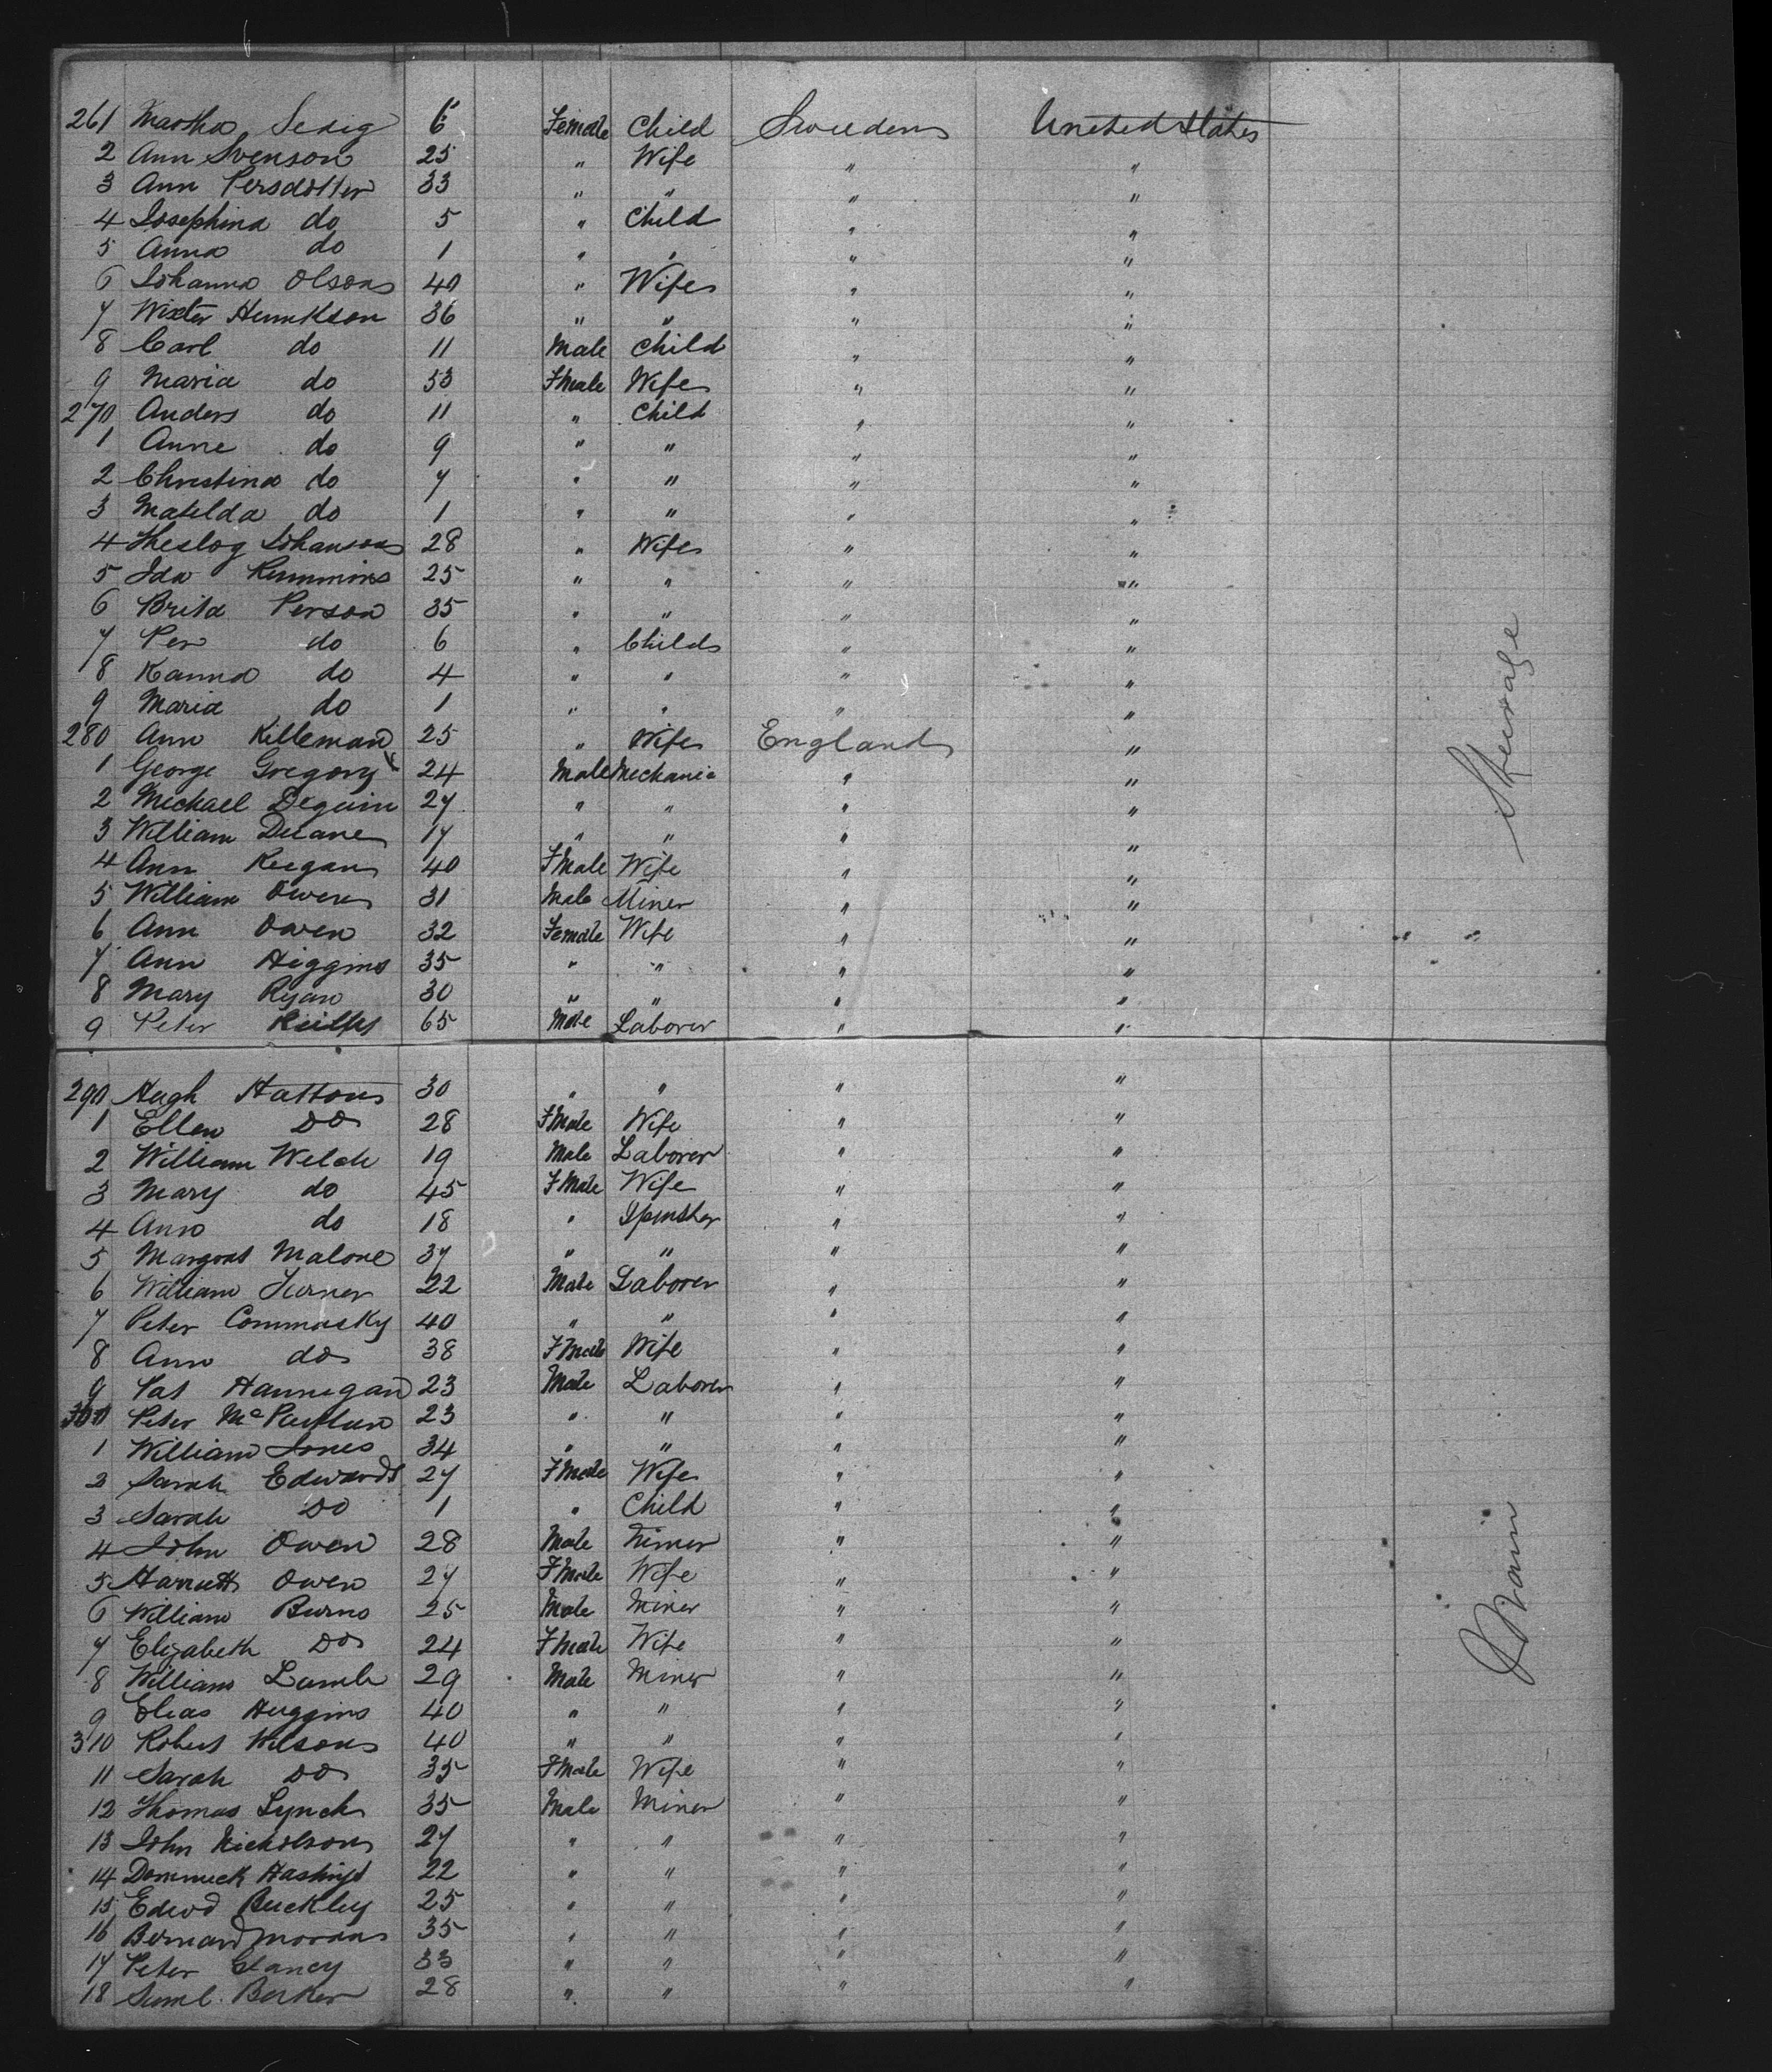 261 Martha Serig 6 Female Child Sweden United States
2 Ann Svenson 25 " Wife " "
3 Ann Persdotter 33 " " " "
4 Josephina do 5 " Child " "
5 Anna do 1 " " " "
6 Johanna Olson 40 " Wife " "
7 36 " " " "
8 Carl do 11 Male Child " "
9 Maria do 53 Fmale Wife " "
270 Anders do 11 " Child " "
1 Anne do 9 " " " "
2 Christina do 7 " " " "
3 Matilda do 1 " " " "
4 Johanson 28 " Wife " "
5 Ida 25 " " " "
6 Brita Person 35 " " " "
7 Per do 6 " Child " "
8 Kanna do 4 " " " "
9 Maria do 1 " " " "
280 Ann Killeman 25 " Wife England "
1 George Gregory 24 Male Mechanic " "
2 Michael Deguin 27 " " " "
3 William Duane 17 " " " "
4 Ann Keegan 40 Fmale Wife " "
5 William Owen 31 Male Miner " "
6 Ann Owen 32 Female Wife " " " "
7 Ann Higgins 35 " " " "
8 Mary Ryan 30 " " " "
9 Peter 65 Male Laborer " "
Steerage
290 Hugh Hatton 30 " " " "
1 Ellen Do 28 Fmale Wife " "
2 William Welch 19 Male Laborer " "
3 Mary do 45 Fmale Wife " "
4 Ann do 18 " Spinster " "
5 Margret Malone 37 " " " "
6 William Turner 22 Male Laborer " "
7 Peter Commasky 40 " " " "
8 Ann do 38 Fmale Wife " "
9 Pat Hannegan 23 Male Laborer " "
300 Peter 23 " " " "
1 William Jones 34 " " " "
2 Sarah Edwards 27 Fmale Wife " "
3 Sarah Do 1 " Child " "
4 John Owen 28 Male Miner " "
5 Harriett Owen 27 Fmale Wife " "
6 William Burns 25 Male Miner " "
7 Elizabeth Do 24 Fmale Wife " "
8 William Lamb 29 Male Miner " "
9 Elias Huggins 40 " " " "
310 Robert Wilson 40 " " " "
11 Sarah Do 35 Fmale Wife " "
12 Thomas Lynch 35 Male Miner " "
13 John Nicholson 27 " " " "
14 Dominick Hastings 22 " " " "
15 Edwd Buckley 25 " " " "
16 Bernard Moran 35 " " " "
17 Peter Clancy 33 " " " "
18 Saml Barker 28 " " " "